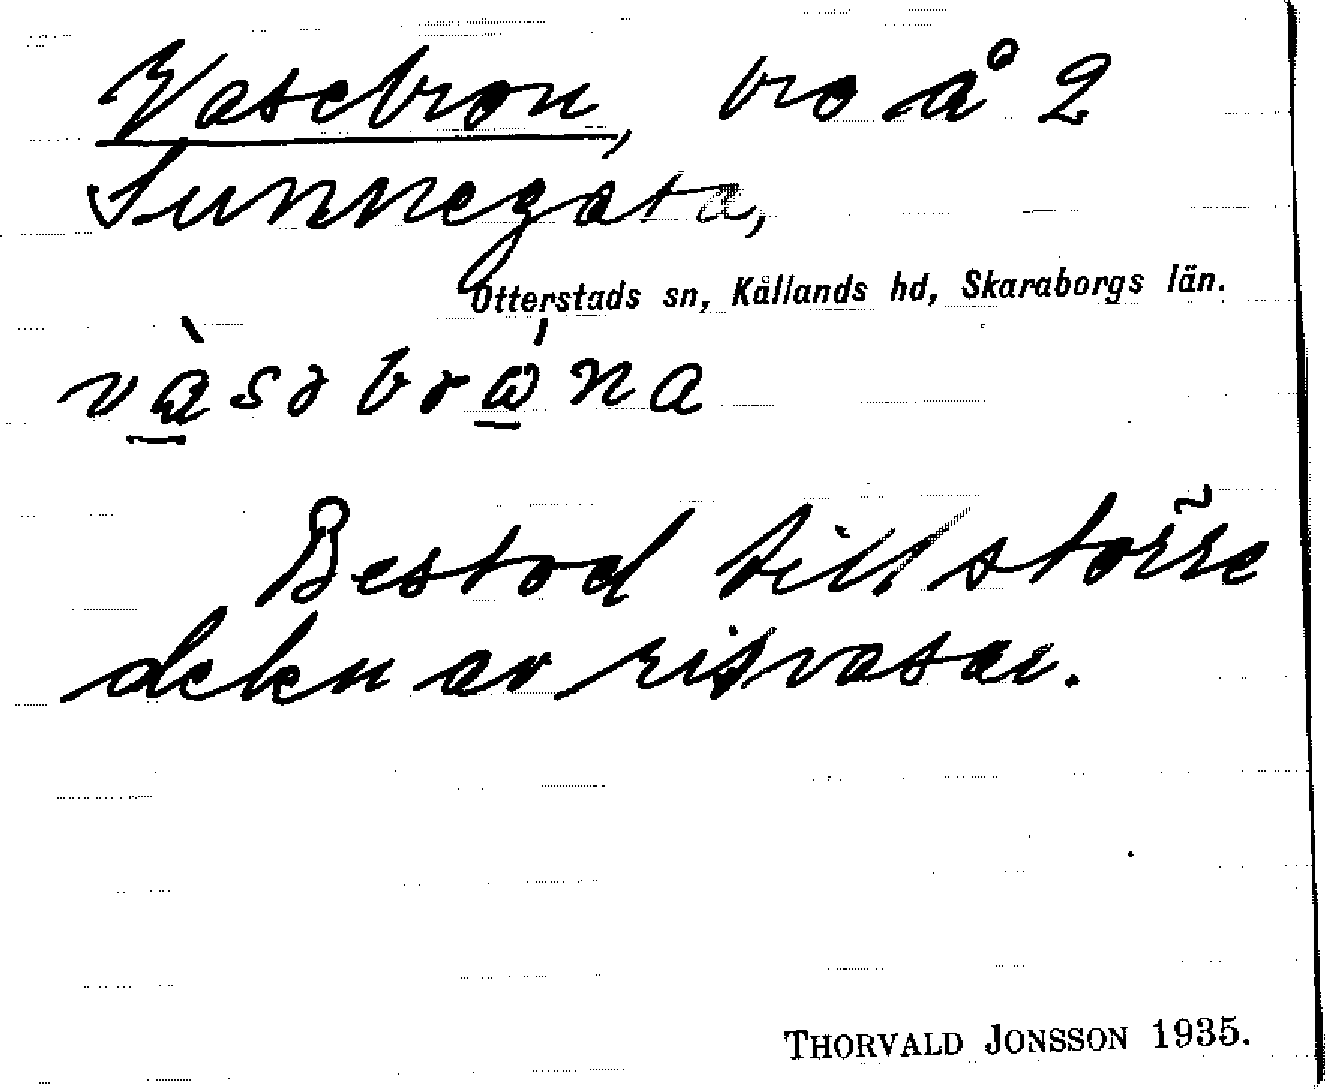 Vasebron, bro å 2
Sunnegåta,
Otterstads sn, Kållands hd, Skaraborgs län.
Bestod till större
delen av risvasar.
THORVALD JONSSON 1935.